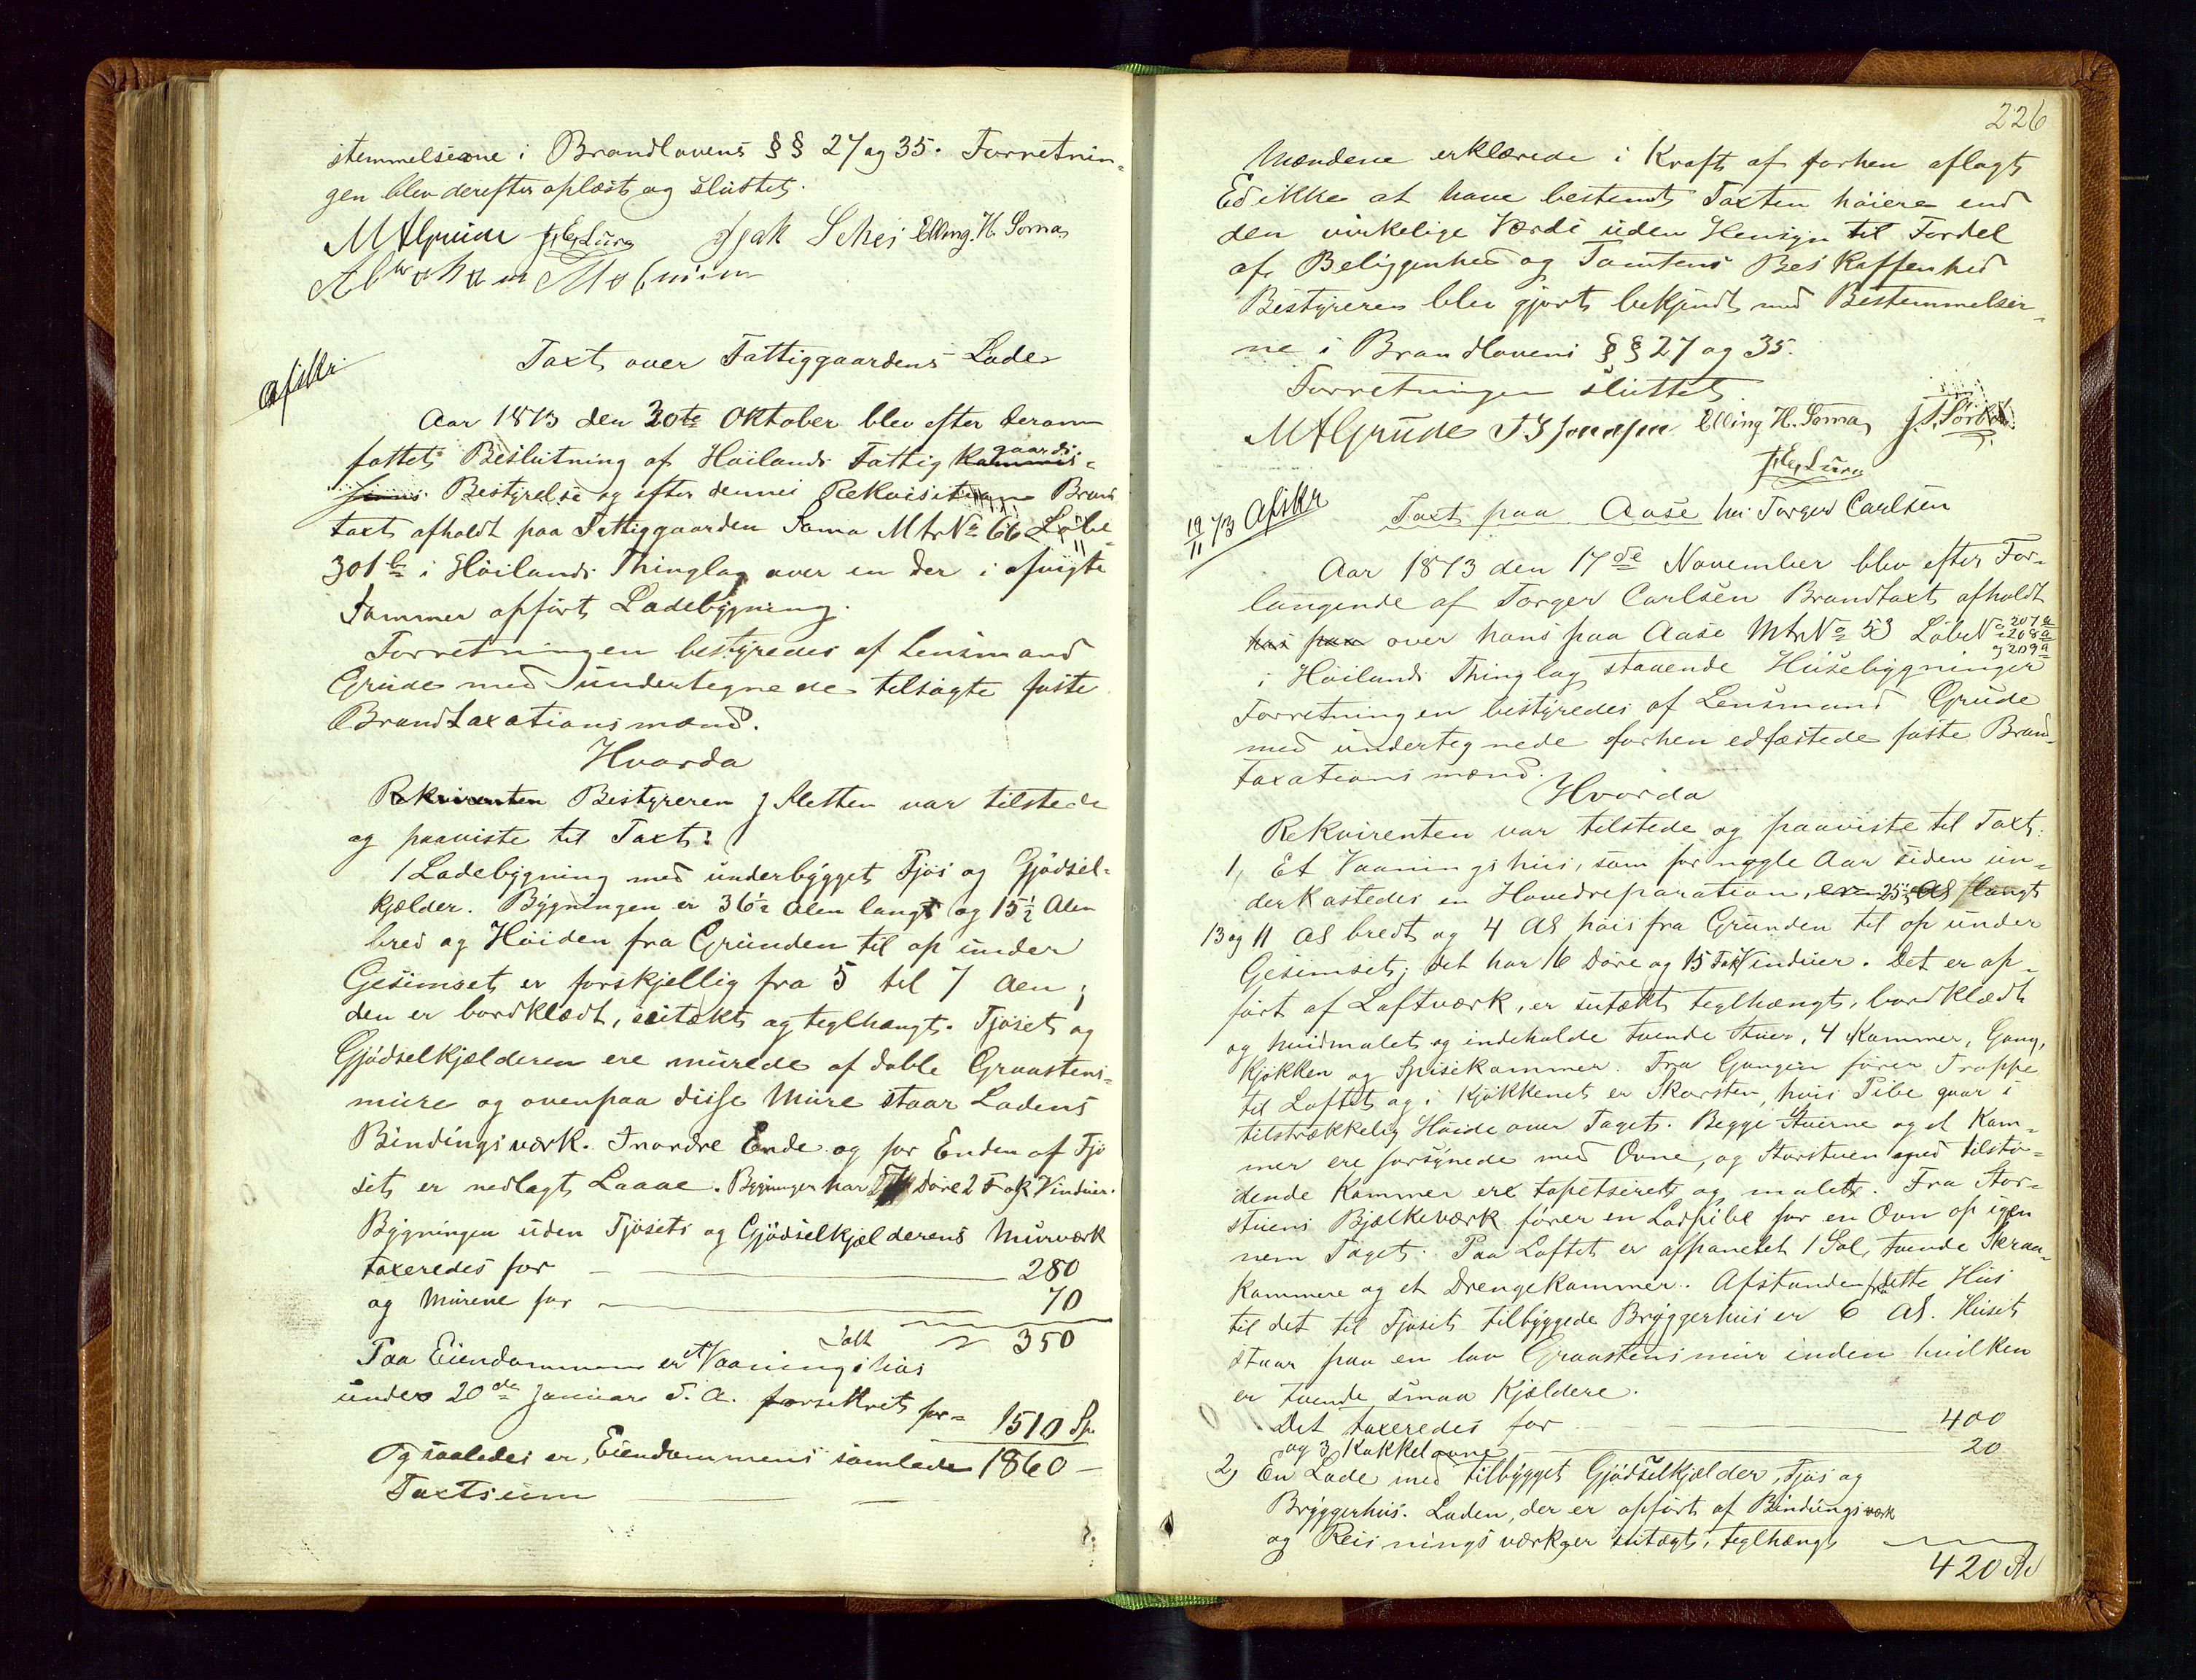 stemmelserne i Brandlovens §§ 27 og 35. Forretnin-
gen blev derefter oplæst og sluttet.
M A Grude J. E. Lura Isak Schei Elling. H. Soma
Abraham
Afskr
Taxt over Fattiggaardens Lade
Aar 1873 den 30te Oktober blev efter derom
fattet Beslutning af Høilands Fattig kommis- gaards-
sions Bestyrelse og efter dennes Rekvisition Brand
taxt afholdt paa Fattiggaarden Soma Mtr No 66 Løbe-
301b i Høilands Thinglag over en der i afvigte
Sommer opført Ladebygning.
Forretningen bestyredes af Lensmand
Grude med undertegnede tilsagte faste
Brandtaxationsmænd.
Hvorda
Rekvirenten Bestyreren J Sletten var tilstede
og paaviste til Taxt:
1 Ladebygning med underbygget Fjøs og Gjødsel-
kjælder. Bygningen er 36½ Alen langt og 15½ Alen
bred og Høiden fra Grunden til op under
Gesimset er forskjellig fra 5 til 7 Alen;
den er bordklædt, sutækt og teglhængt. Fjøset og
Gjødselkjælderen ere murede af doble Graastens-
mure og ovenpaa disse Mure staar Ladens
Bindingsværk. I nordre Ende og for Enden af Fjø
set er nedlagt Laave. Bygningen har Døre 2 Fag Vinduer.
Bygningen uden Fjøsets og Gjødselkjælderens Murværk
taxeredes for — 280
og Murene for — 70
Ialt 350
Paa Eiendommen er et Vaaningshus
under 20de Januar d. A. forsikret for = 1510 Sp.
Og saaledes er Eiendommens samlede 1860 —
Taxtsum — —
226
Mændene erklærede i Kraft af forhen aflagt
Ed ikke at have bestemt Taxten høiere end
den virkelige Værdi uden Hensyn til Fordel
af Beliggenhed og Tomtens Beskaffenhed
Bestyreren blev gjort bekjendt med Bestemmelser-
ne i Brandlovens §§ 27 og 35.
Forretningen sluttet.
M A Grude Elling H. Soma
J. E. Lura
19/11 73 Afskr
Taxt paa Aase hos Torger Carlsen
Aar 1873 den 17de November blev efter For-
langende af Torger Carlsen Brandtaxt afholdt
hos paa over hans paa Aase Mtr No 53 Løbe No 207a 208a og 209a
i Høilands Thinglag staaende Husebygninger
Forretningen bestyredes af Lensmand Grude
med undertegnede forhen edfæstede faste Brand-
taxationsmænd.
Hvorda
Rekvirenten var tilstede og paaviste til Taxt:
1, Et Vaaningshus, som for nogle Aar siden un-
derkastedes en Hovedreparation, er 25½ Al langt
13 og 11 Al bredt og 4 Al høit fra Grunden til op under
Gesimset; det har 16 Døre og 15 Fag Vinduer. Det er op-
ført af Loftværk, er sutækt teglhængt, bordklædt
og hvidmalet og indeholde tvende Stuer, 4 Kammer, Gang,
Kjøkken og Spisekammer. Fra Gangen fører Trappe
til Loftet og i Kjøkkenet er Skorsten, hvis Pibe gaar i
tilstrækkelig Høide over Taget. Begge Stuerne og et Kam-
mer ere forsynede med Ovne, og Storstuen med tilstø-
dende Kammer ere tapetseret og malet. Fra Stor-
stuens Bjælkeværk fører en Lodpibe for en Ovn op igjen
nem Taget. Paa Loftet er afpanelet 1 Sal, tvende Skraa-
kammere og et Drengekammer. Afstanden fra dette Hus
til det til Fjøset tilbyggede Bryggerhus er 6 Al. Huset
staar paa en lav Graastensmur inden hvilken
er tvende smaa Kjældere.
Det taxeredes for — 400
og 3 Kakkelovne — 20
2, En Lade med tilbygget Gjødselkjælder, Fjøs og
Bryggerhus. Laden, der er opført af Bindingsværk
og Reisningsværk, er sutægt, teglhængt
420